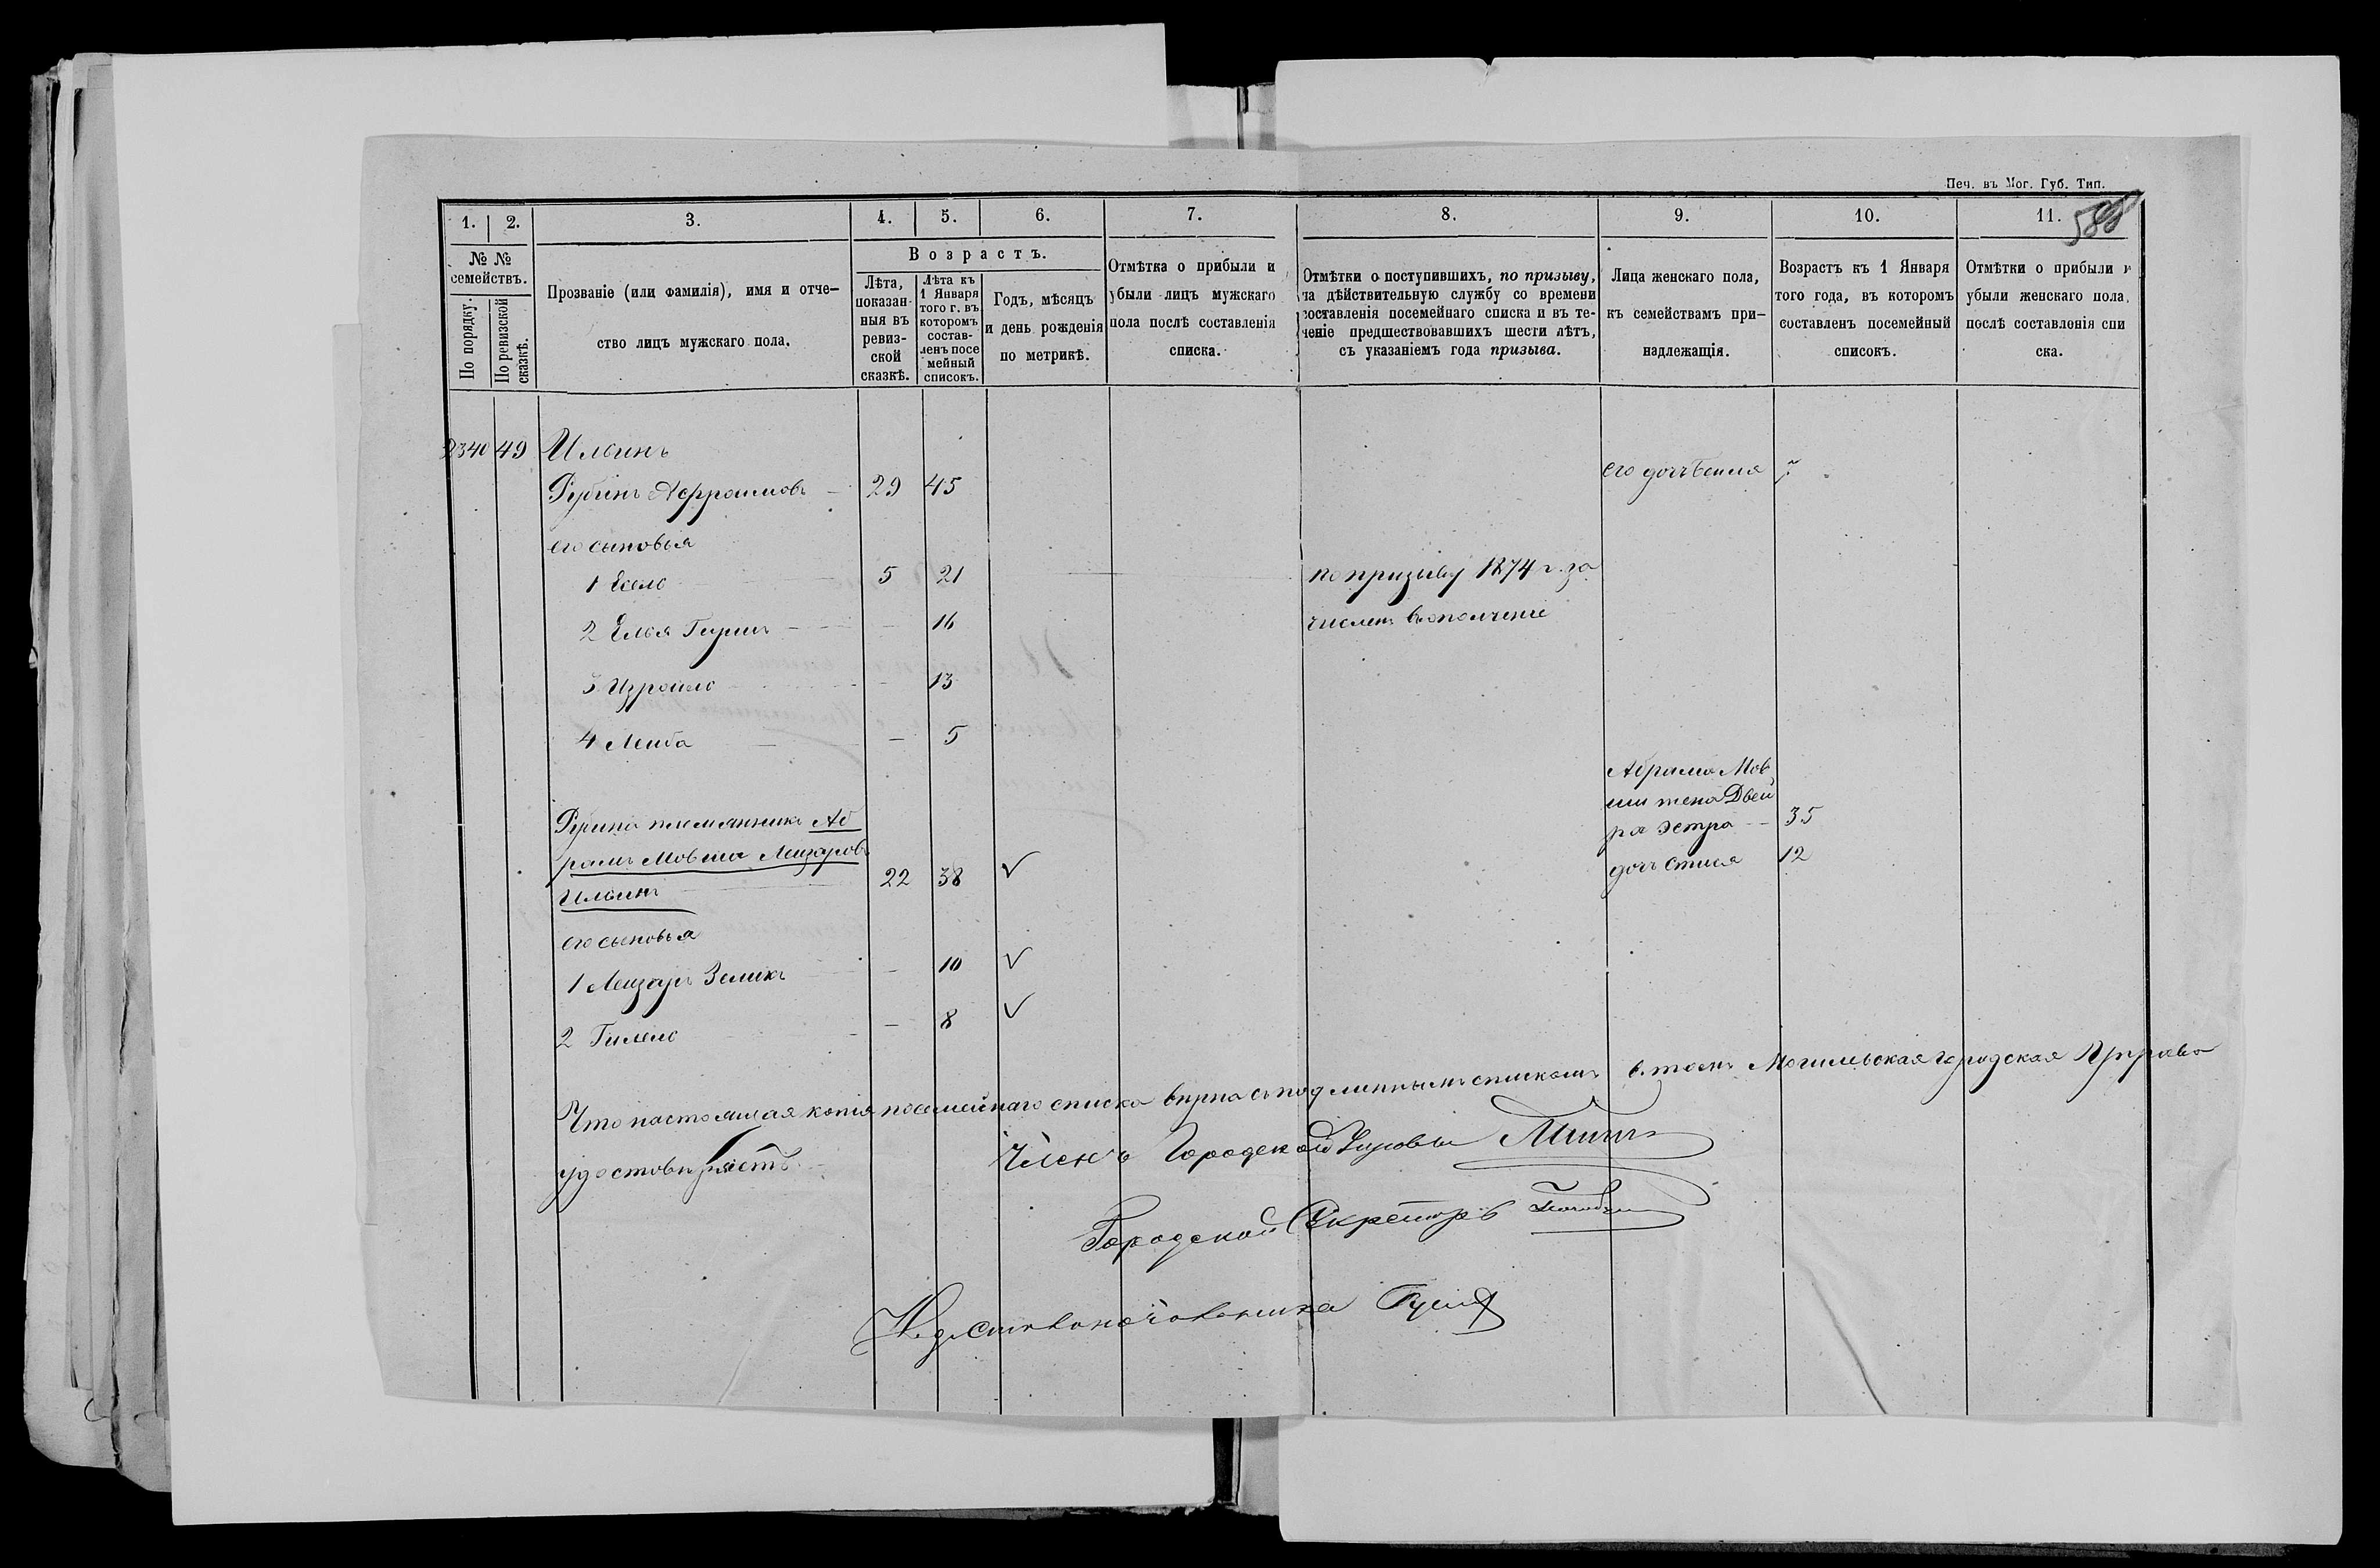 Печ. въ Мог. Губ. Тип.
1. 2. 3. 4. 5. 6. 7. 8. 9. 10. 11.
№ №
семействъ.
По порядку.
По ревизской
сказкѣ.
Прозваніе (или фамилія), имя и отче-
ство лицъ мужскаго пола.
Возрастъ.
Лѣта,
показан-
ныя въ
ревиз-
ской
сказкѣ.
Лѣта къ
1 Января
того г. въ
которомъ
состав-
ленъ посе
мейный
списокъ.
Годъ, мѣсяцъ
и день рожденія
по метрикѣ.
Отмѣтка о прибыли и
убыли лицъ мужскаго
пола послѣ составленія
списка.
Отмѣтки о поступившихъ, по призыву,
на дѣйствительную службу со времени
составленія посемейнаго списка и въ те-
ченіе предшествовавшихъ шести лѣтъ,
съ указаніемъ года призыва.
Лица женскаго пола,
къ семействамъ при-
надлежащія.
Возрастъ къ 1 Января
того года, въ которомъ
составленъ посемейный
списокъ.
Отмѣтки о прибыли и
убыли женскаго пола,
послѣ составленія спи
ска.
2340 49 Ильинъ
Рубинъ Афроимовъ — 29 45
его дочь Бейля 7
его сыновья
1 Есель 5 21 по призыву 1874 г. за
2 Елья Гиршъ — — 16 численъ въ ополченіе
3 Изроиль — 13
4 Лейба — 5
Рубина племянникъ Аб
рамъ Мовша Лейзаровъ
Ильинъ 22 38 √
Абрама Мов
ши жена Двей
ра Эстра — 35
дочь Стися 12
его сыновья
1 Лейзаръ Зеликъ — 10 √
2 Гилель — 8 √
Что настоящая копія посемейнаго списка вѣрна съ подлиннымъ спискомъ въ томъ Могилевская городская Управа
удостовѣряетъ.
Членъ Городской Управы
Городской Секретарь
И. д. Столоначальника